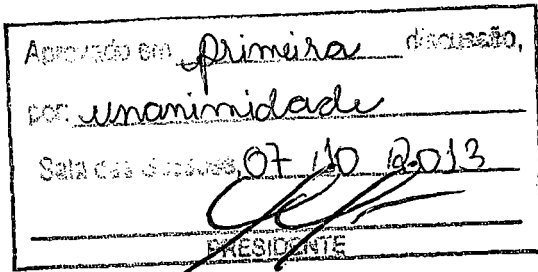 Aprovado em primeira discussão,
por: unanimidade
Sala das Sessões, 07 / 10 / 2013
PRESIDENTE